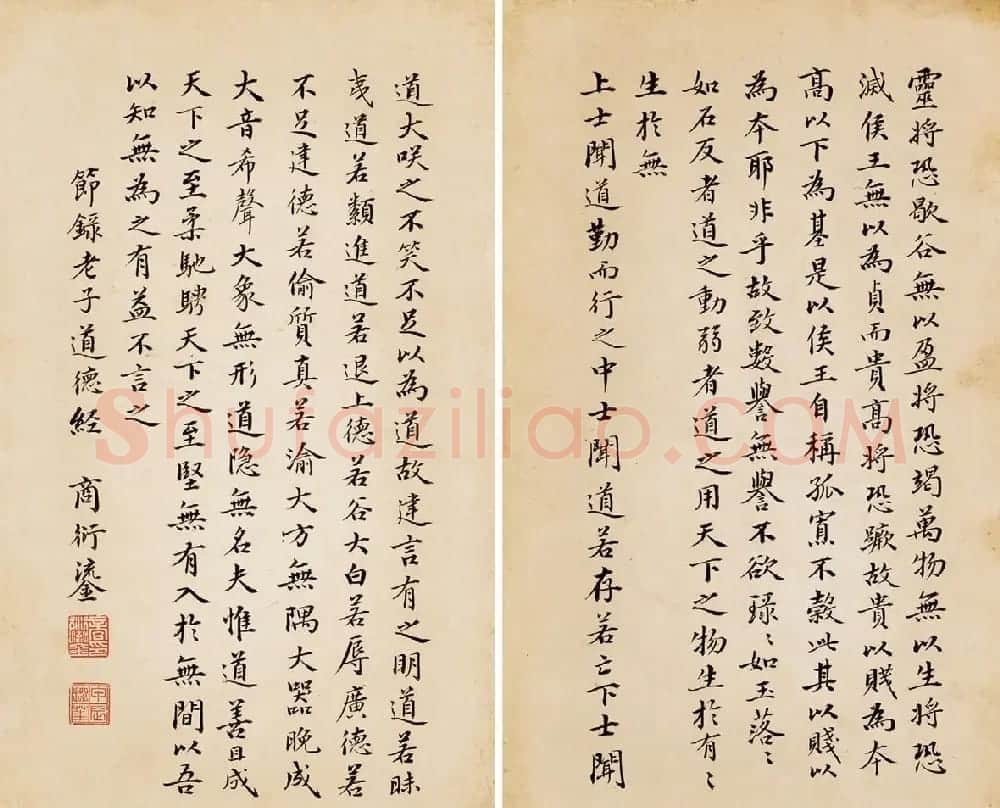 靈將恐歇谷無以盈將恐竭萬物無以生將恐
滅侯王無以為貞而貴高將恐蹶故貴以賤為本
高以下為基是以侯王自稱孤寡不穀此其以賤以
為本耶非乎故致數譽無譽不欲琭〻如玉落〻
如石反者道之動弱者道之用天下之物生於有〻
生於無
上士聞道勤而行之中士聞道若存若亡下士聞
道大咲之不笑不足以為道故建言有之明道若昧
夷道若類進道若退上德若谷大白若辱廣德若
不足建德若偷質真若渝大方無隅大器晚成
大音希聲大象無形道隐無名夫惟道善且成
天下之至柔馳騁天下之至堅無有入於無間以吾
以知無為之有益不言之
節錄老子道德经 商衍鎏
Shufaziliao.COM